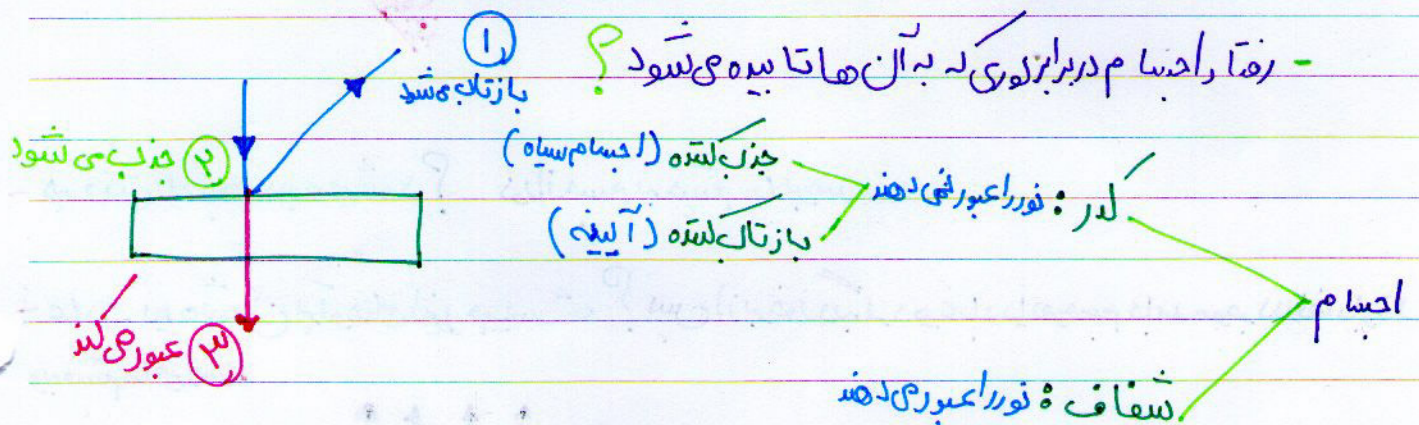 - رفتار اجسام در برابر نوری که به آن ها تابیده می شود ؟
۱ بازتاب می شود
۲ جذب می شود
۳ عبور می کند
اجسام
کدر : نور را عبور نمی دهند
جذب کننده (اجسام سیاه)
بازتاب کننده (آیینه)
شفاف : نور را عبور می دهند